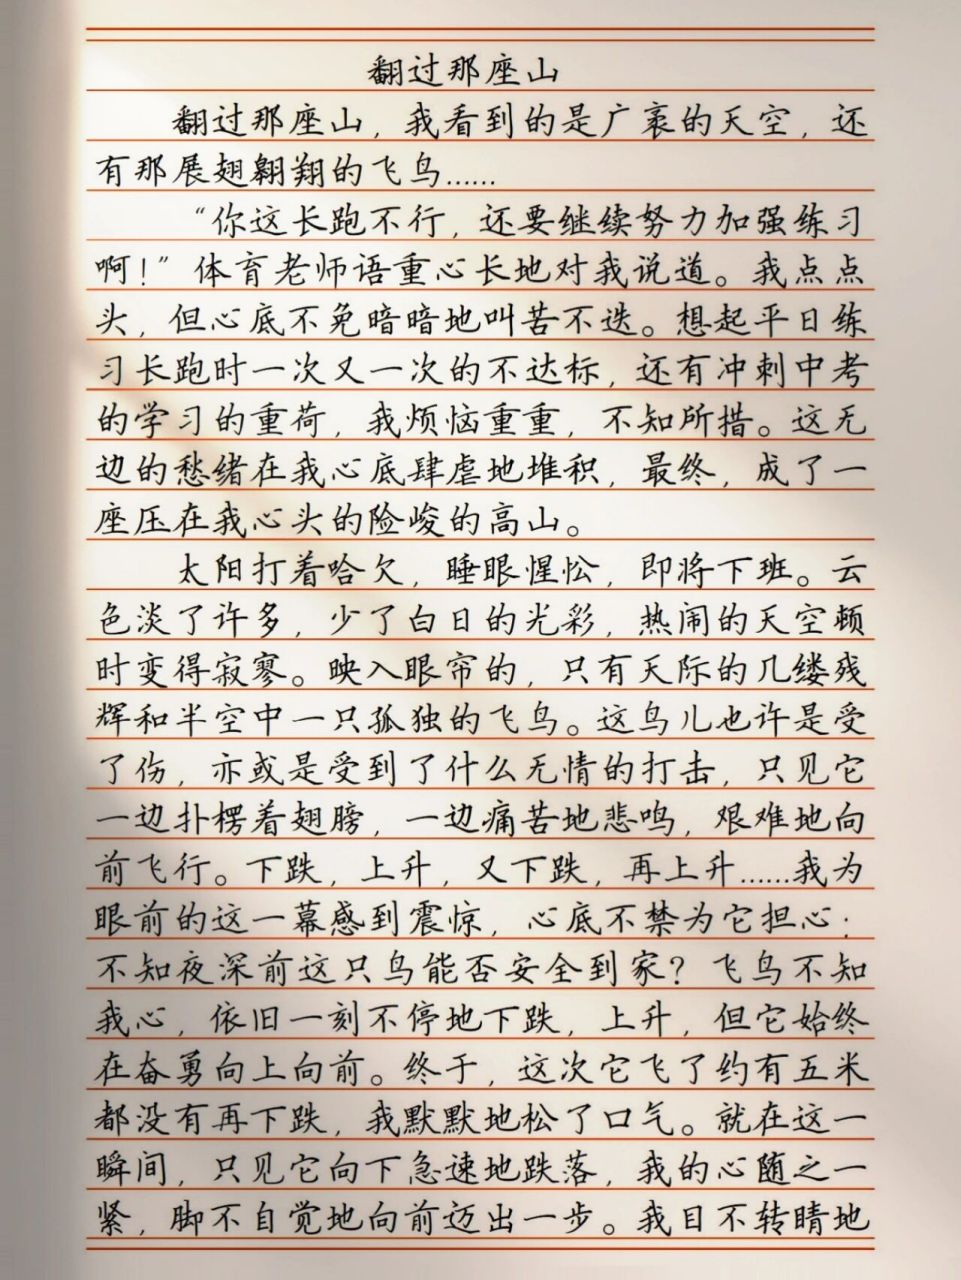 翻过那座山
翻过那座山，我看到的是广袤的天空，还
有那展翅翱翔的飞鸟……
“你这长跑不行，还要继续努力加强练习
啊！”体育老师语重心长地对我说道。我点点
头，但心底不免暗暗地叫苦不迭。想起平日练
习长跑时一次又一次的不达标，还有冲刺中考
的学习的重荷，我烦恼重重，不知所措。这无
边的愁绪在我心底肆虐地堆积，最终，成了一
座压在我心头的险峻的高山。
太阳打着哈欠，睡眼惺忪，即将下班。云
色淡了许多，少了白日的光彩，热闹的天空顿
时变得寂寥。映入眼帘的，只有天际的几缕残
辉和半空中一只孤独的飞鸟。这鸟儿也许是受
了伤，亦或是受到了什么无情的打击，只见它
一边扑楞着翅膀，一边痛苦地悲鸣，艰难地向
前飞行。下跌，上升，又下跌，再上升……我为
眼前的这一幕感到震惊，心底不禁为它担心：
不知夜深前这只鸟能否安全到家？飞鸟不知
我心，依旧一刻不停地下跌，上升，但它始终
在奋勇向上向前。终于，这次它飞了约有五米
都没有再下跌，我默默地松了口气。就在这一
瞬间，只见它向下急速地跌落，我的心随之一
紧，脚不自觉地向前迈出一步。我目不转睛地